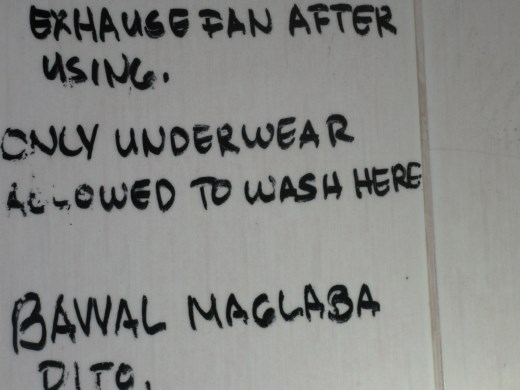 EXHAUSE FAN AFTER
USING.
ONLY UNDERWEAR
ALLOWED TO WASH HERE
BAWAL MAGLABA
DITO.